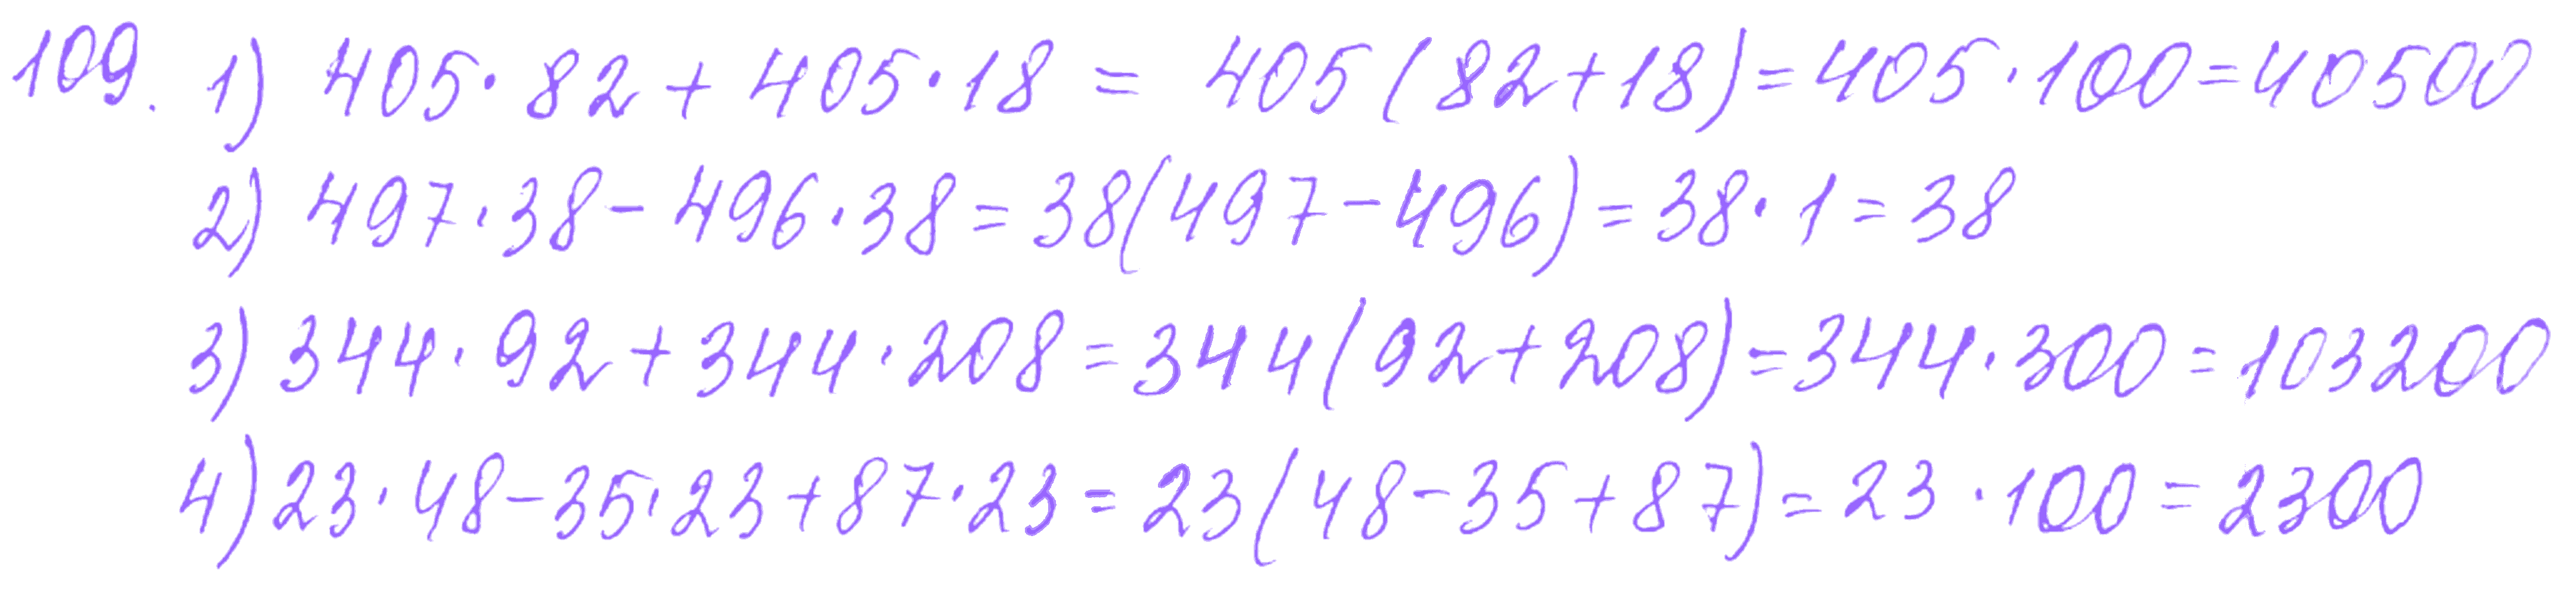 109. 1) 405·82+405·18 = 405(82+18)=405·100=40500
2) 497·38-496·38=38(497-496)=38·1=38
3) 344·92+344·208=344(92+208)=344·300=103200
4) 23·48-35·23+87·23=23(48-35+87)=23·100=2300